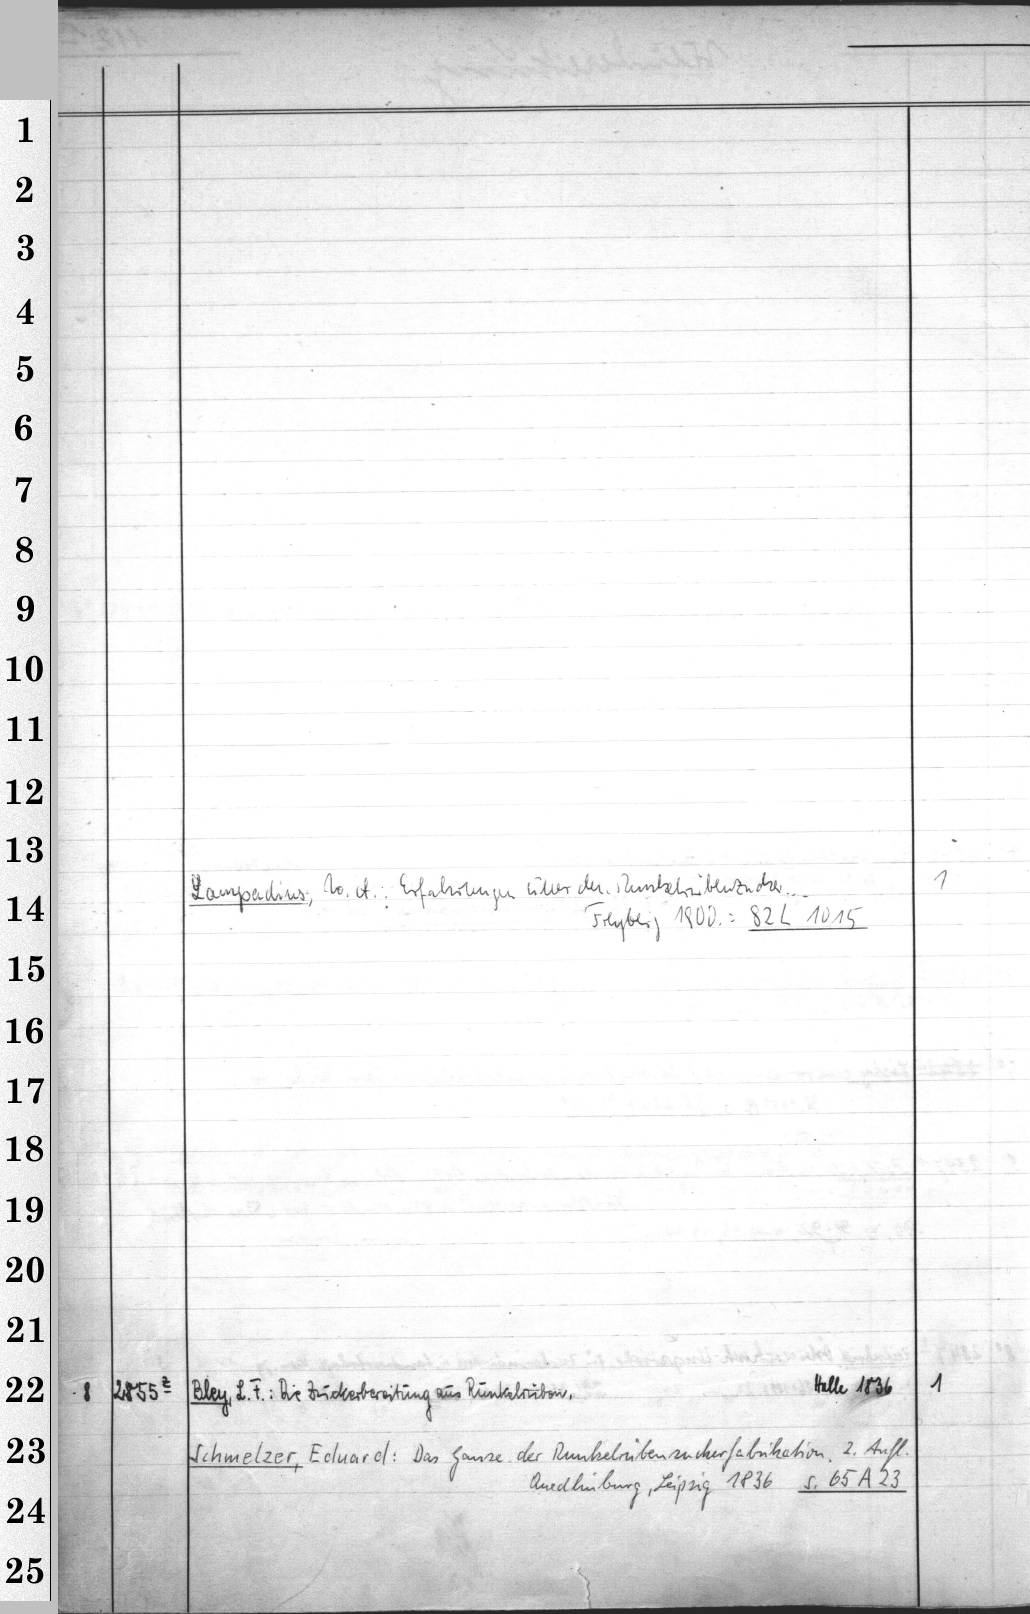 1
2
3
4
5
6
7
8
9
10
11
12
13
Lampadius, W. A.: Erfahrungen über den Runkelrübenzucker... 1
14
Freyberg 1800. = 82 L 1015
15
16
17
18
19
20
21
22 8 2855 z Bley, L. F.: Die Zuckerbereitung aus Runkelrüben. Halle 1836 1
23 Schmelzer, Eduard: Das Ganze der Runkelrübenzuckerfabrikation. 2. Aufl.
Quedlinburg, Leipzig 1836 s. 65 A 23
24
25